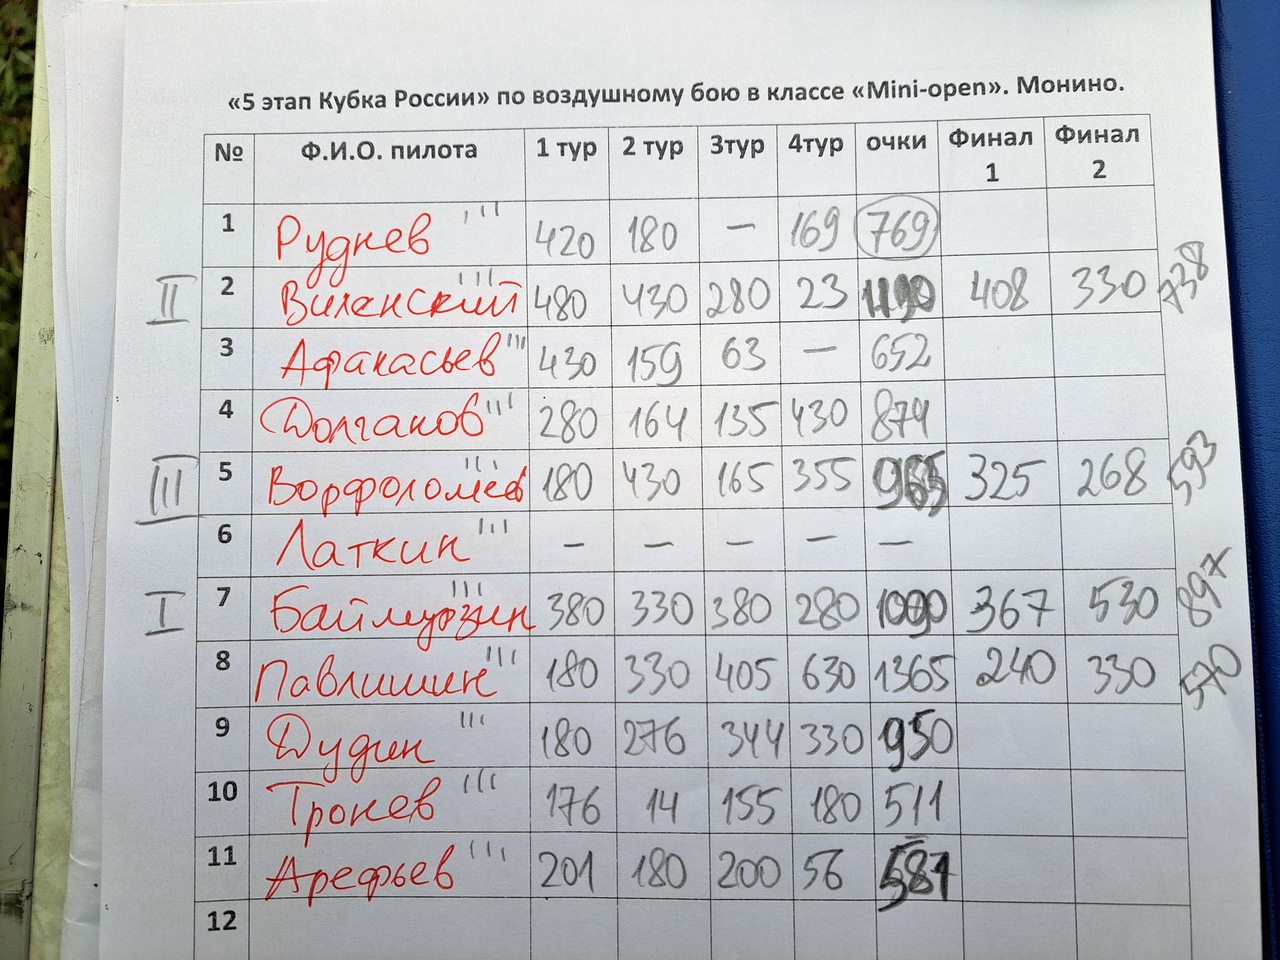 «5 этап Кубка России» по воздушному бою в классе «Mini-open». Монино.
№ Ф.И.О. пилота 1 тур 2 тур 3тур 4тур очки Финал 1 Финал 2
1 Руднев ''' 420 180 — 169 769
II 2 Виленский ''' 480 430 280 23 1190 408 330 738
3 Афанасьев ''' 430 159 63 — 652
4 Долганов ''' 280 164 135 430 874
III 5 Ворфоломеев ''' 180 430 165 355 965 325 268 593
6 Латкин ''' — — — — —
I 7 Баймурзин ''' 380 330 380 280 1090 367 530 897
8 Павлишин ''' 180 330 405 630 1365 240 330 570
9 Дудин ''' 180 276 344 330 950
10 Тронев ''' 176 14 155 180 511
11 Арефьев ''' 201 180 200 56 581
12